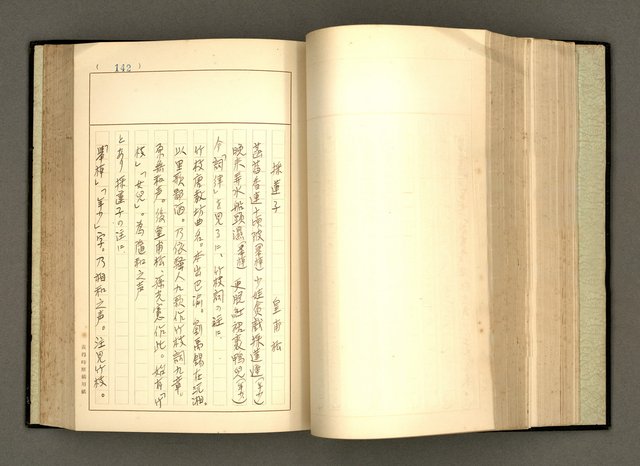 (142)
採蓮子　皇甫松
菡萏香連十頃陂(擧棹)　小姑貪戲採蓮遲(年少)
晚來弄水船頭濕(擧棹)　更脫紅裙裹鴨兒(年少)
今「詞律」を見るに、竹枝詞の注に
竹枝唐教坊曲名。本出巴渝。劉禹錫在沅湘。
以里歌鄙陋。乃依騷人九歌作竹枝詞九章。
原無和声。後皇甫松、孫光憲作此。始有「竹
枝」「女兒」。為隨和之声
とあり採蓮子の注に
「擧棹」「年少」字。乃相和之声。注見竹枝。